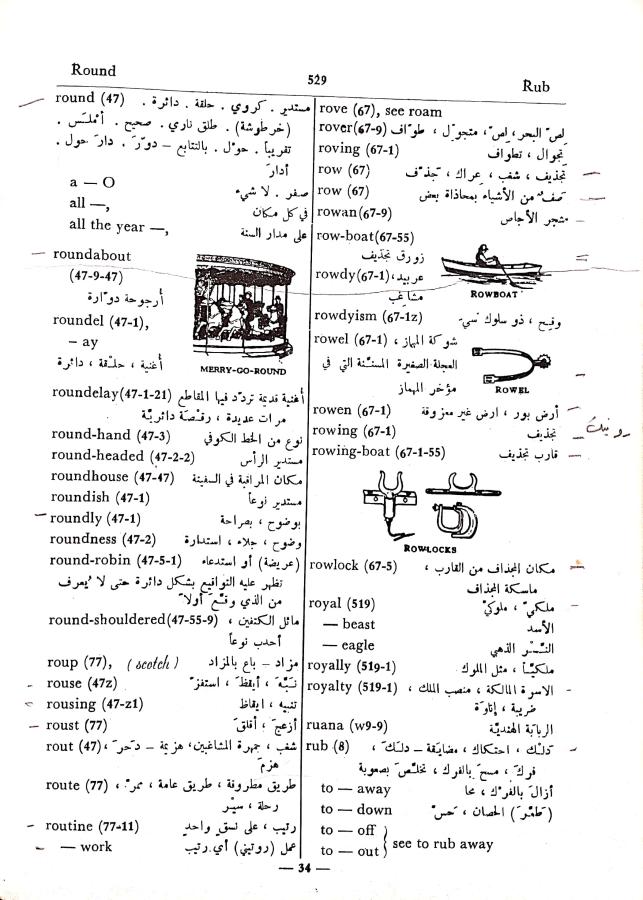 Round
529
Rub
round (47) مستدير . كروي . حلقة . دائرة .
(خرطوشة) . طلق ناري . صحيح . أملس .
تقريباً . حول . بالتتابع – دوّر . دار حول .
أدار
a — O صفر . لا شيء
all —, في كل مكان
all the year —, على مدار السنة
roundabout
(47-9-47)
أرجوحة دوّارة
MERRY-GO-ROUND
roundel (47-1),
— ay
أغنية ، حلقة ، دائرة
roundelay(47-1-21) أغنية قديمة تردّد فيها المقاطع
مرات عديدة ، رقصة دائريّة
round-hand (47-3) نوع من الخط الكوفي
round-headed (47-2-2) مستدير الرأس
roundhouse (47-47) مكان المراقبة في السفينة
roundish (47-1) مستدير نوعاً
roundly (47-1) بوضوح ، بصراحة
roundness (47-2) وضوح ، جلاء ، استدارة
round-robin (47-5-1) (عريضة) أو استدعاء
تظهر عليه التواقيع بشكل دائرة حتى لا يُعرف
من الذي وقّع أولاً
round-shouldered(47-55-9) مائل الكتفين ،
أحدب نوعاً
roup (77), (scotch) مزاد – باع بالمزاد
rouse (47z) نبّه ، أيقظ ، استفزّ
rousing (47-z1) تنبيه ، ايقاظ
roust (77) أزعج ، أقلق
rout (47) شغب ، جمهرة المشاغبين، هزيمة – دحر ،
هزم
route (77) طريق مطروقة ، طريق عامة ، ممرّ ،
رحلة ، سير
routine (77-11) رتيب ، على نسق واحد
— work عمل (روتيني) أي رتيب
rove (67), see roam
rover(67-9) لص البحر ، لص ، متجول ، طواف
roving (67-1) تجوال ، تطواف
row (67) تجذيف ، شغب ، عراك ، جذّف
row (67) صف من الأشياء بمحاذاة بعض
rowan(67-9) شجر الأجاص
row-boat(67-55)
زورق تجذيف
ROWBOAT
rowdy(67-1) عربيد،
مشاغب
rowdyism (67-1z) وقيح ، ذو سلوك سيّء
rowel (67-1) شوكة المهماز ،
العجلة الصغيرة المسننة التي في
مؤخر المهماز
ROWEL
rowen (67-1) أرض بور ، ارض غير معزوقة
rowing (67-1) تجذيف
روينك
rowing-boat (67-1-55) قارب تجذيف
ROWLOCKS
rowlock (67-5) مكان المجذاف من القارب ،
ماسكة المجذاف
royal (519) ملكيّ ، ملوكيّ
— beast الأسد
— eagle النسر الذهبي
royally (519-1) ملكياً ، مثل الملوك
royalty (519-1) الاسرة المالكة ، منصب الملك ،
ضريبة ، إتاوة
ruana (w9-9) الربابة الهنديّة
rub (8) دلك ، احتكاك ، مضايقة – دلك ،
فرك ، مسح بالفرك ، تخلّص بصعوبة
to — away أزال بالفرك ، محا
to — down (طمّر) الحصان ، حسّ
to — off
to — out } see to rub away
— 34 —